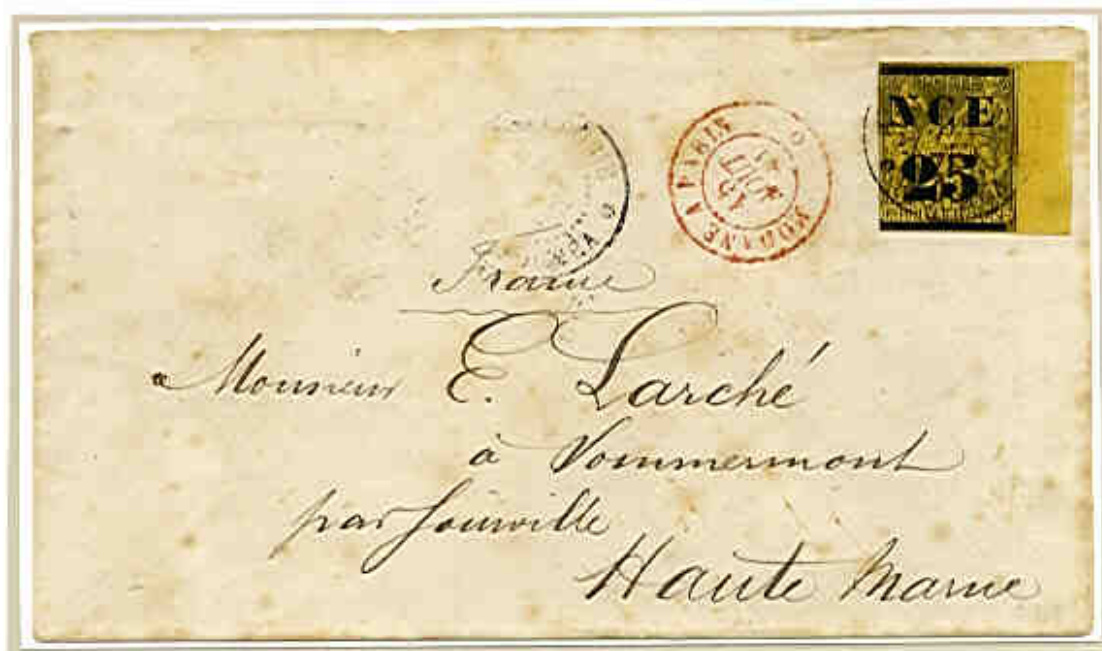 NCE
25
MODANE A PARIS
AOUT
France
a Monsieur E. Larché
à Vommermont
par Joinville
Haute Marne